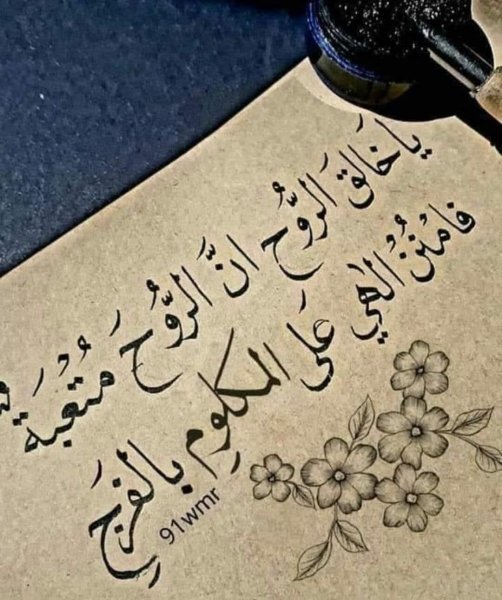 يا خَالق الرُّوح انَّ الرُّوح مُتْعَبة
فامْنُنْ الٰهي عَلى المكلومِ بالفرَجِ
91wmr